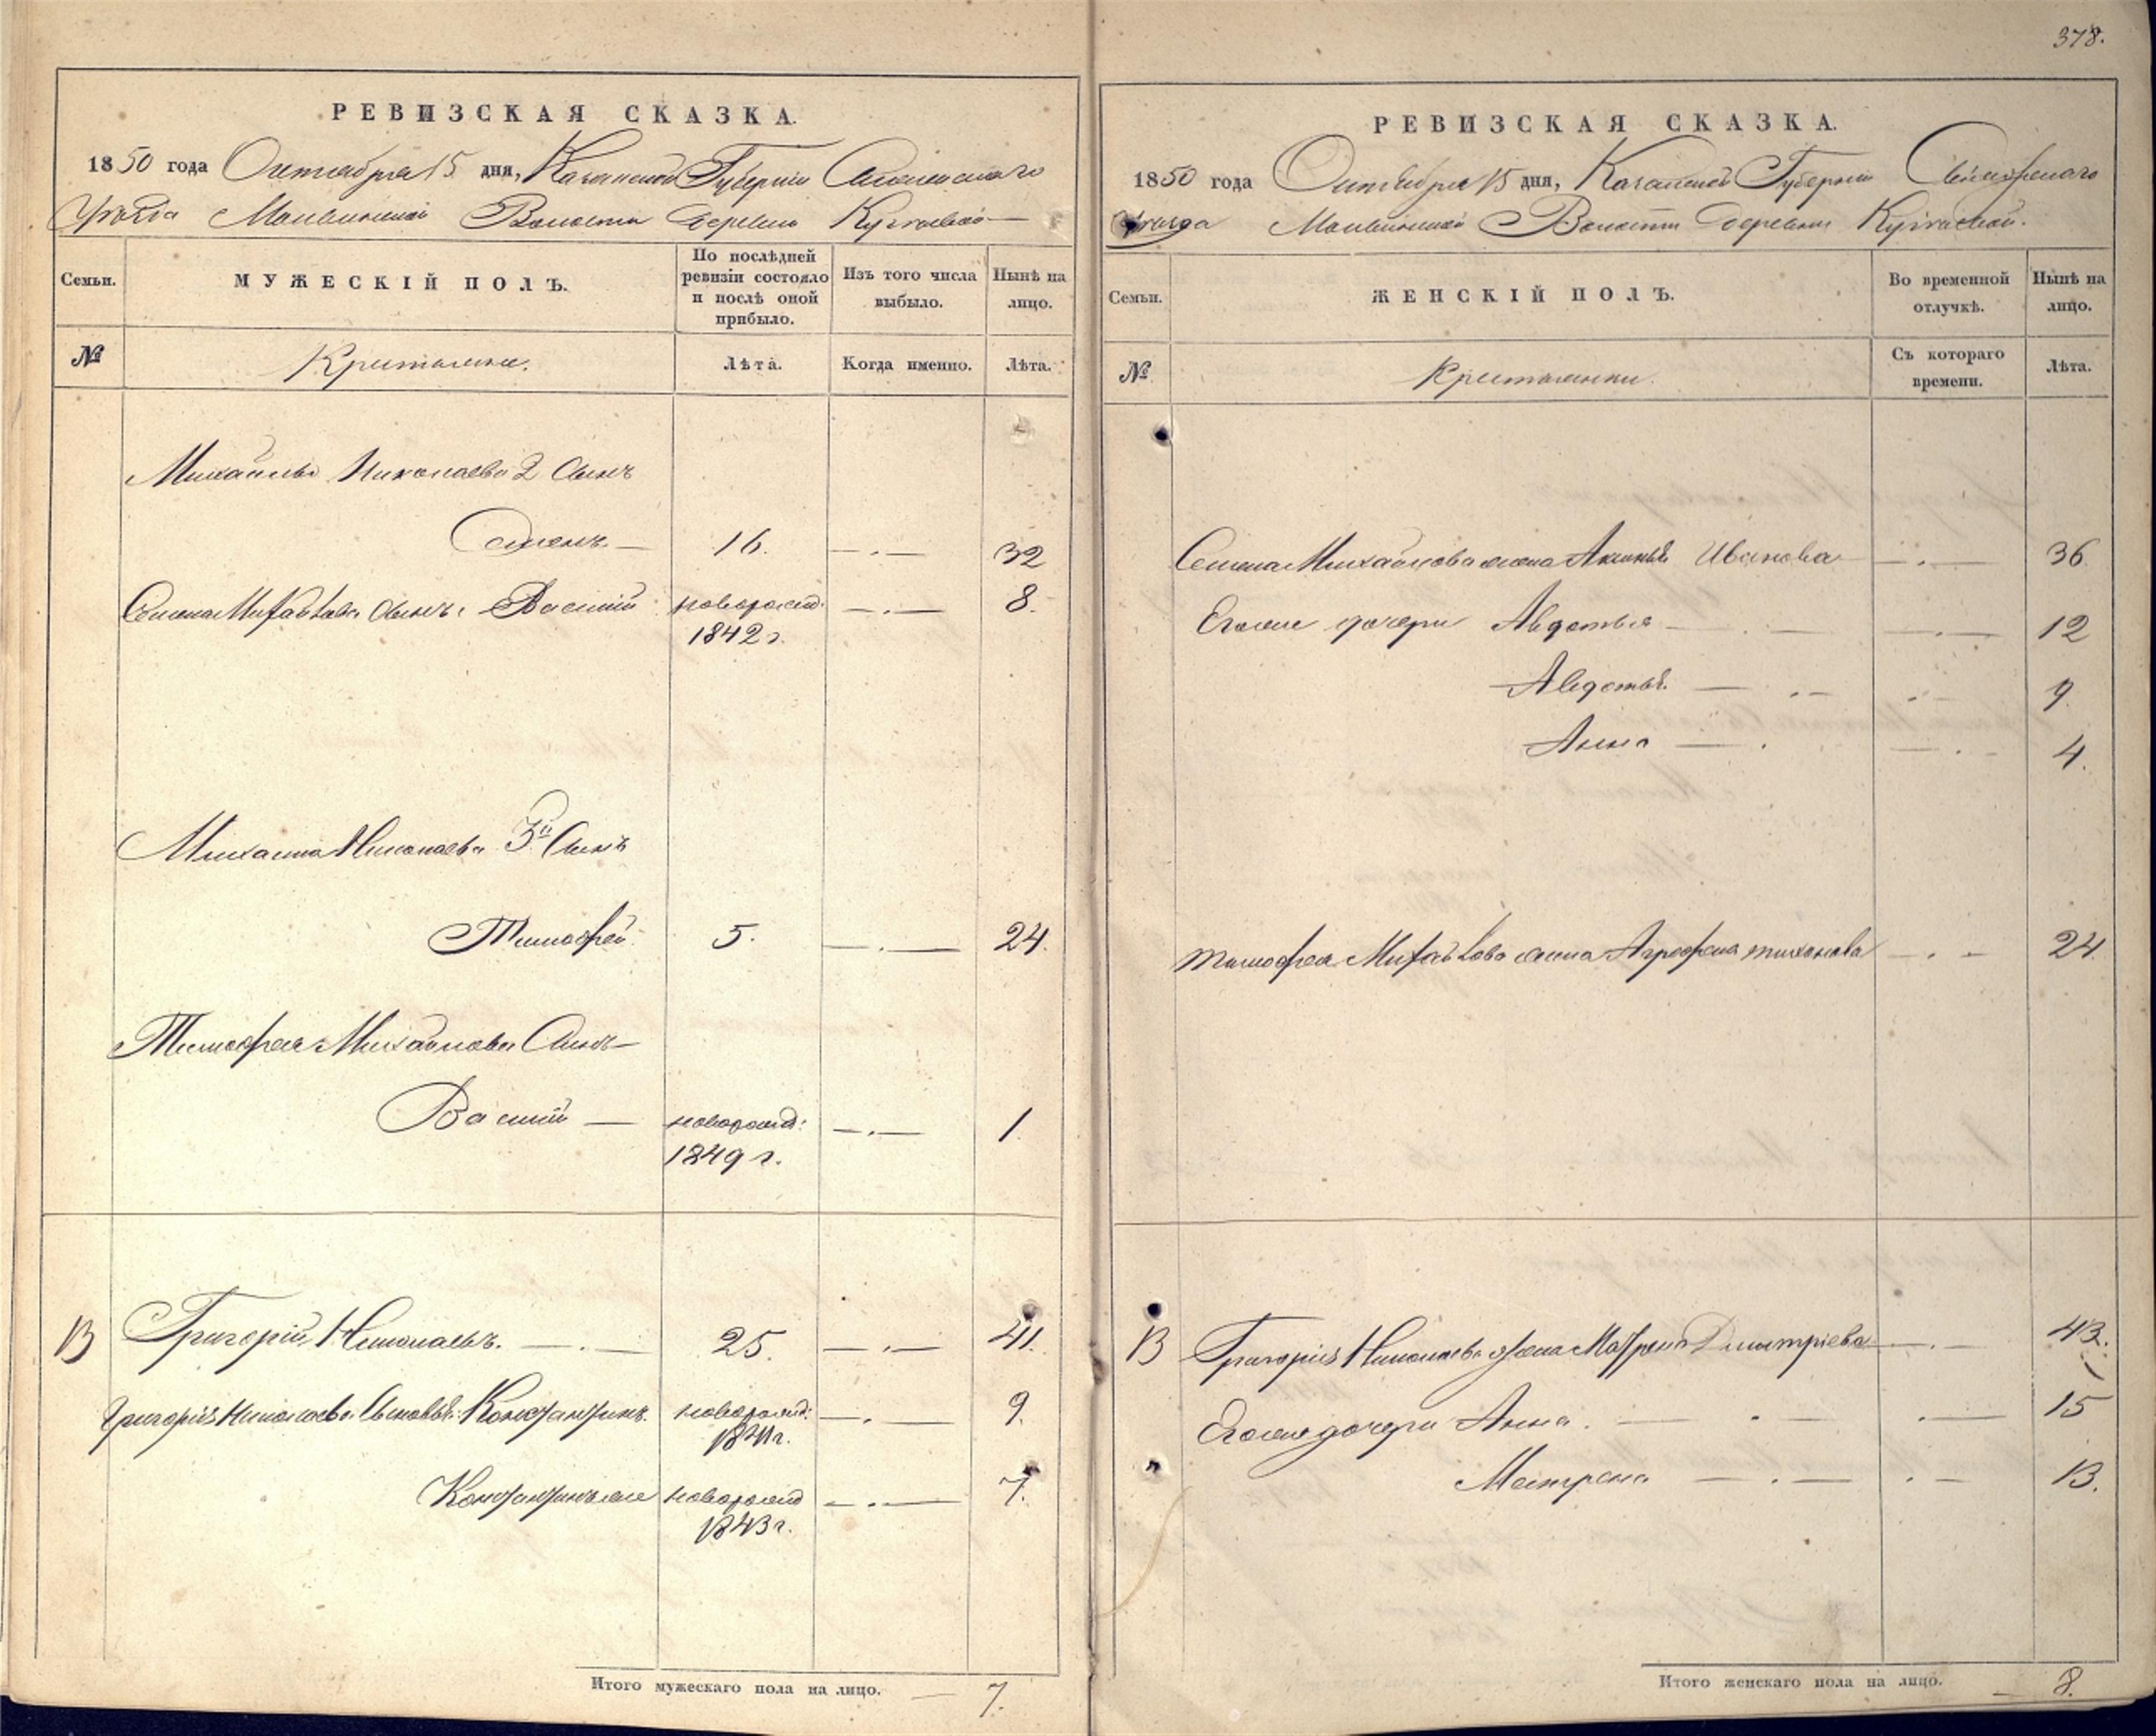 378.
РЕВИЗСКАЯ СКАЗКА.
1850 года Октября 15 дня, Казанской Губернии
Уезда Волости деревни
Семьи.
МУЖЕСКІЙ ПОЛЪ.
По послѣдней ревизіи состояло и послѣ оной прибыло.
Изъ того числа выбыло.
Нынѣ на лицо.
№
Крестьяне.
Лѣта.
Когда именно.
Лѣта.
Михайлы Николаева 2 Сынъ
Семенъ — 16. —.— 32
Семена Михайлова Сынъ Василій новорожд: —.— 8.
1842 г.
Михаила Николаева 3й Сынъ
Тимофей 5. —.— 24.
Тимофея Михайлова Сынъ —
Василій — новорожд: —.— 1.
1849 г.
13 Григорій Николаевъ. —.— 25. —.— 41.
Григорія Николаева Сыновья: Константинъ новорожд: —.— 9.
1841 г.
Константинъ же новорожд —.— 7.
1843 г.
Итого мужескаго пола на лицо. — 7.
РЕВИЗСКАЯ СКАЗКА.
1850 года Октября 15 дня, Казанской Губернии
Уезда Волости деревни
Семьи.
ЖЕНСКІЙ ПОЛЪ.
Во временной отлучкѣ.
Нынѣ на лицо.
№
Крестьянки.
Съ котораго времени.
Лѣта.
Семена Михайлова жена Иванова —.— 36
Его же дочери Авдотья — . — —.— 12
Авдотья — .. — 9.
Анна — . —.— 4.
Тимофея Михайлова жена Агрофена Тихонова —.— 24
13 Григорія Николаева жена Матрена Дмитріева —.— 43.
Его же дочери Анна. — . — .— 15
Матрена — . — . — 13.
Итого женскаго пола на лицо. — 8.